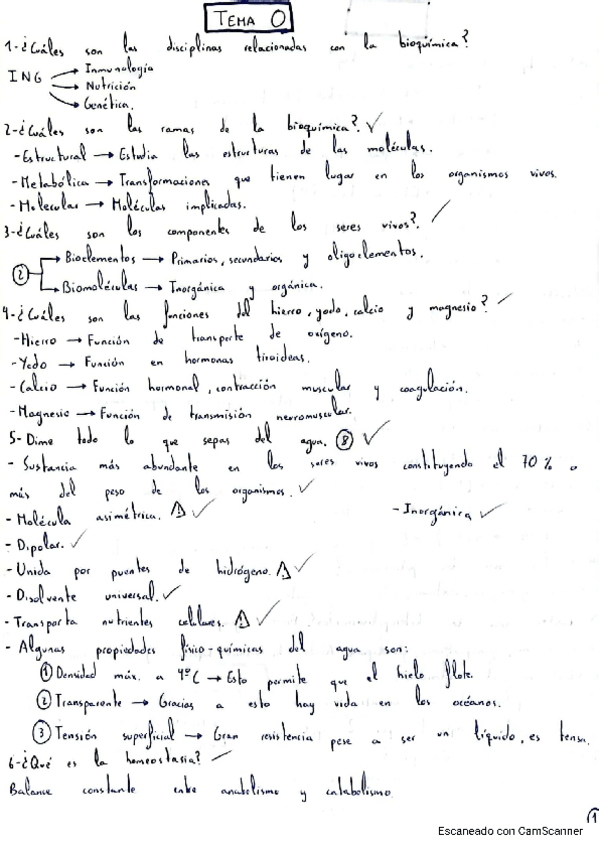 TEMA 0
1-¿Cuáles son las disciplinas relacionadas con la bioquímica?
ING → Inmunología
→ Nutrición
→ Genética.
2-¿Cuáles son las ramas de la bioquímica? ✓
-Estructural → Estudia las estructuras de las moléculas.
-Metabólica → Transformaciones que tienen lugar en los organismos vivos.
-Molecular → Moléculas implicadas.
3-¿Cuáles son los componentes de los seres vivos?
② → Bioelementos → Primarios, secundarios y oligoelementos.
→ Biomoléculas → Inorgánica y orgánica.
4-¿Cuáles son las funciones del hierro, yodo, calcio y magnesio?
-Hierro → Función de transporte de oxígeno.
-Yodo → Función en hormonas tiroideas.
-Calcio → Función hormonal, contracción muscular y coagulación.
-Magnesio → Función de transmisión neuromuscular.
5-Dime todo lo que sepas del agua. ⑧ ✓
- Sustancia más abundante en los seres vivos constituyendo el 70% o
más del peso de los organismos. ✓
- Molécula asimétrica. ⚠ ✓ - Inorgánica ✓
- Dipolar. ✓
- Unida por puentes de hidrógeno. ⚠ ✓
- Disolvente universal. ✓
- Transporta nutrientes celulares. ⚠ ✓
- Algunas propiedades físico-químicas del agua son:
① Densidad máx. a 4ºC → Esto permite que el hielo flote.
② Transparente → Gracias a esto hay vida en los océanos.
③ Tensión superficial → Gran resistencia pese a ser un líquido, es tensa.
6-¿Qué es la homeostasia?
Balance constante entre anabolismo y catabolismo.
1
Escaneado con CamScanner